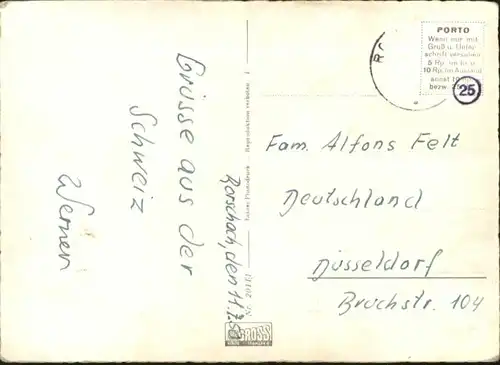 Grüsse aus der
Schweiz
Werner
Rorschach, den 11.7.
Fam. Alfons Felt
Deutschland
Düsseldorf
Bruchstr. 104
PORTO
Wenn nur mit
Gruß u. Unter-
schrift versehen
5 Rp. im In- u.
10 Rp. im Ausland
sonst 10
bezw. 25
25
Reproduktion verboten
GROSS